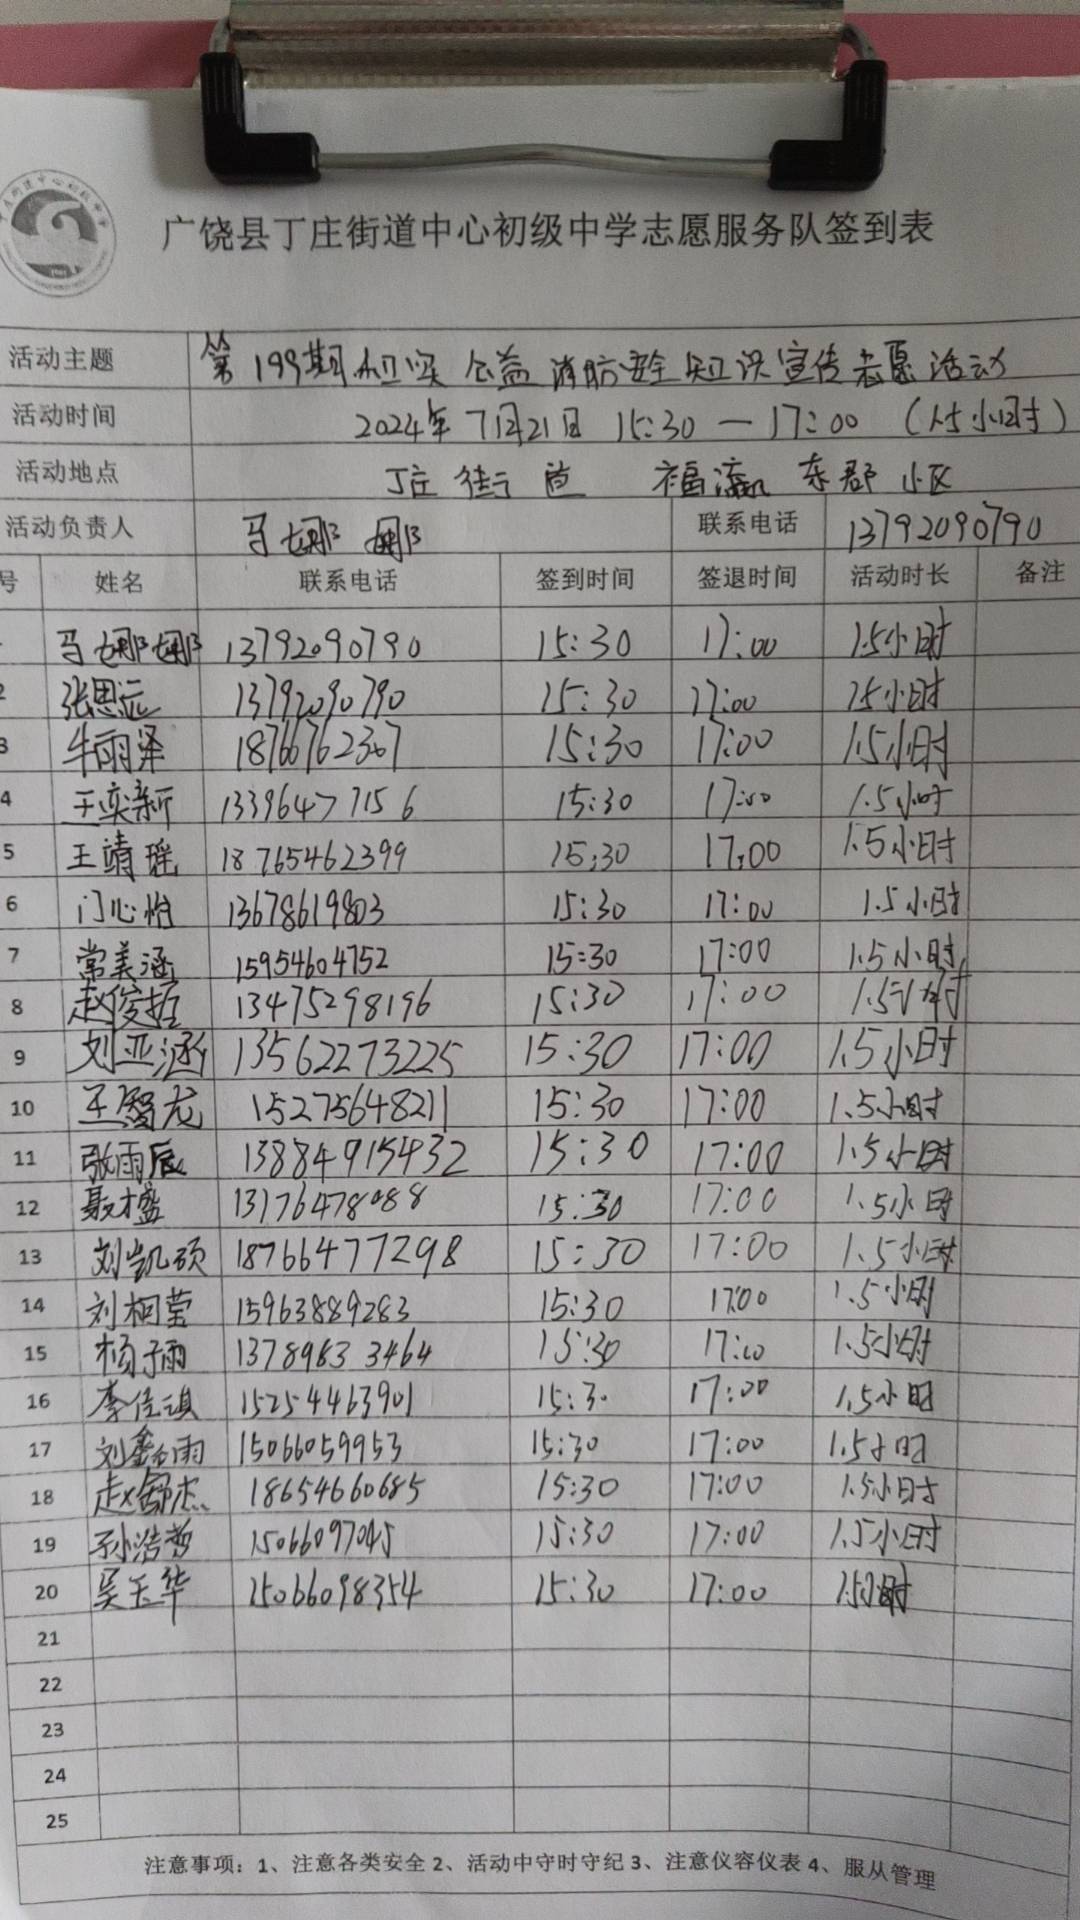 广饶县丁庄街道中心初级中学志愿服务队签到表
活动主题 第199期 公益 消防安全知识宣传志愿活动
活动时间 2024年7月21日 15:30—17:00 (1.5小时)
活动地点 丁庄街道 福瀛东郡小区
活动负责人 马娜娜 联系电话 13792090790
号 姓名 联系电话 签到时间 签退时间 活动时长 备注
马娜娜 13792090790 15:30 17:00 1.5小时
2 张思远 13792090790 15:30 17:00 1.5小时
3 牛雨泽 18766762367 15:30 17:00 1.5小时
4 王奕新 13396477156 15:30 17:00 1.5小时
5 王靖瑶 18765462399 15:30 17:00 1.5小时
6 门心怡 13678619803 15:30 17:00 1.5小时
7 常美涵 15954604752 15:30 17:00 1.5小时
8 赵俊 13475298196 15:30 17:00 1.5小时
9 刘亚涵 13562273225 15:30 17:00 1.5小时
10 王智龙 15275648211 15:30 17:00 1.5小时
11 张雨辰 13884915432 15:30 17:00 1.5小时
12 聂木盛 13176478088 15:30 17:00 1.5小时
13 刘凯硕 18766477298 15:30 17:00 1.5小时
14 刘桐莹 15963889283 15:30 17:00 1.5小时
15 杨子雨 13789833464 15:30 17:00 1.5小时
16 李佳琪 15254463901 15:30 17:00 1.5小时
17 刘鑫雨 15066059953 15:30 17:00 1.5小时
18 赵舒杰 18654660685 15:30 17:00 1.5小时
19 孙浩哲 15066097045 15:30 17:00 1.5小时
20 吴玉华 15066098354 15:30 17:00 1.5小时
21
22
23
24
25
注意事项：1、注意各类安全 2、活动中守时守纪 3、注意仪容仪表 4、服从管理